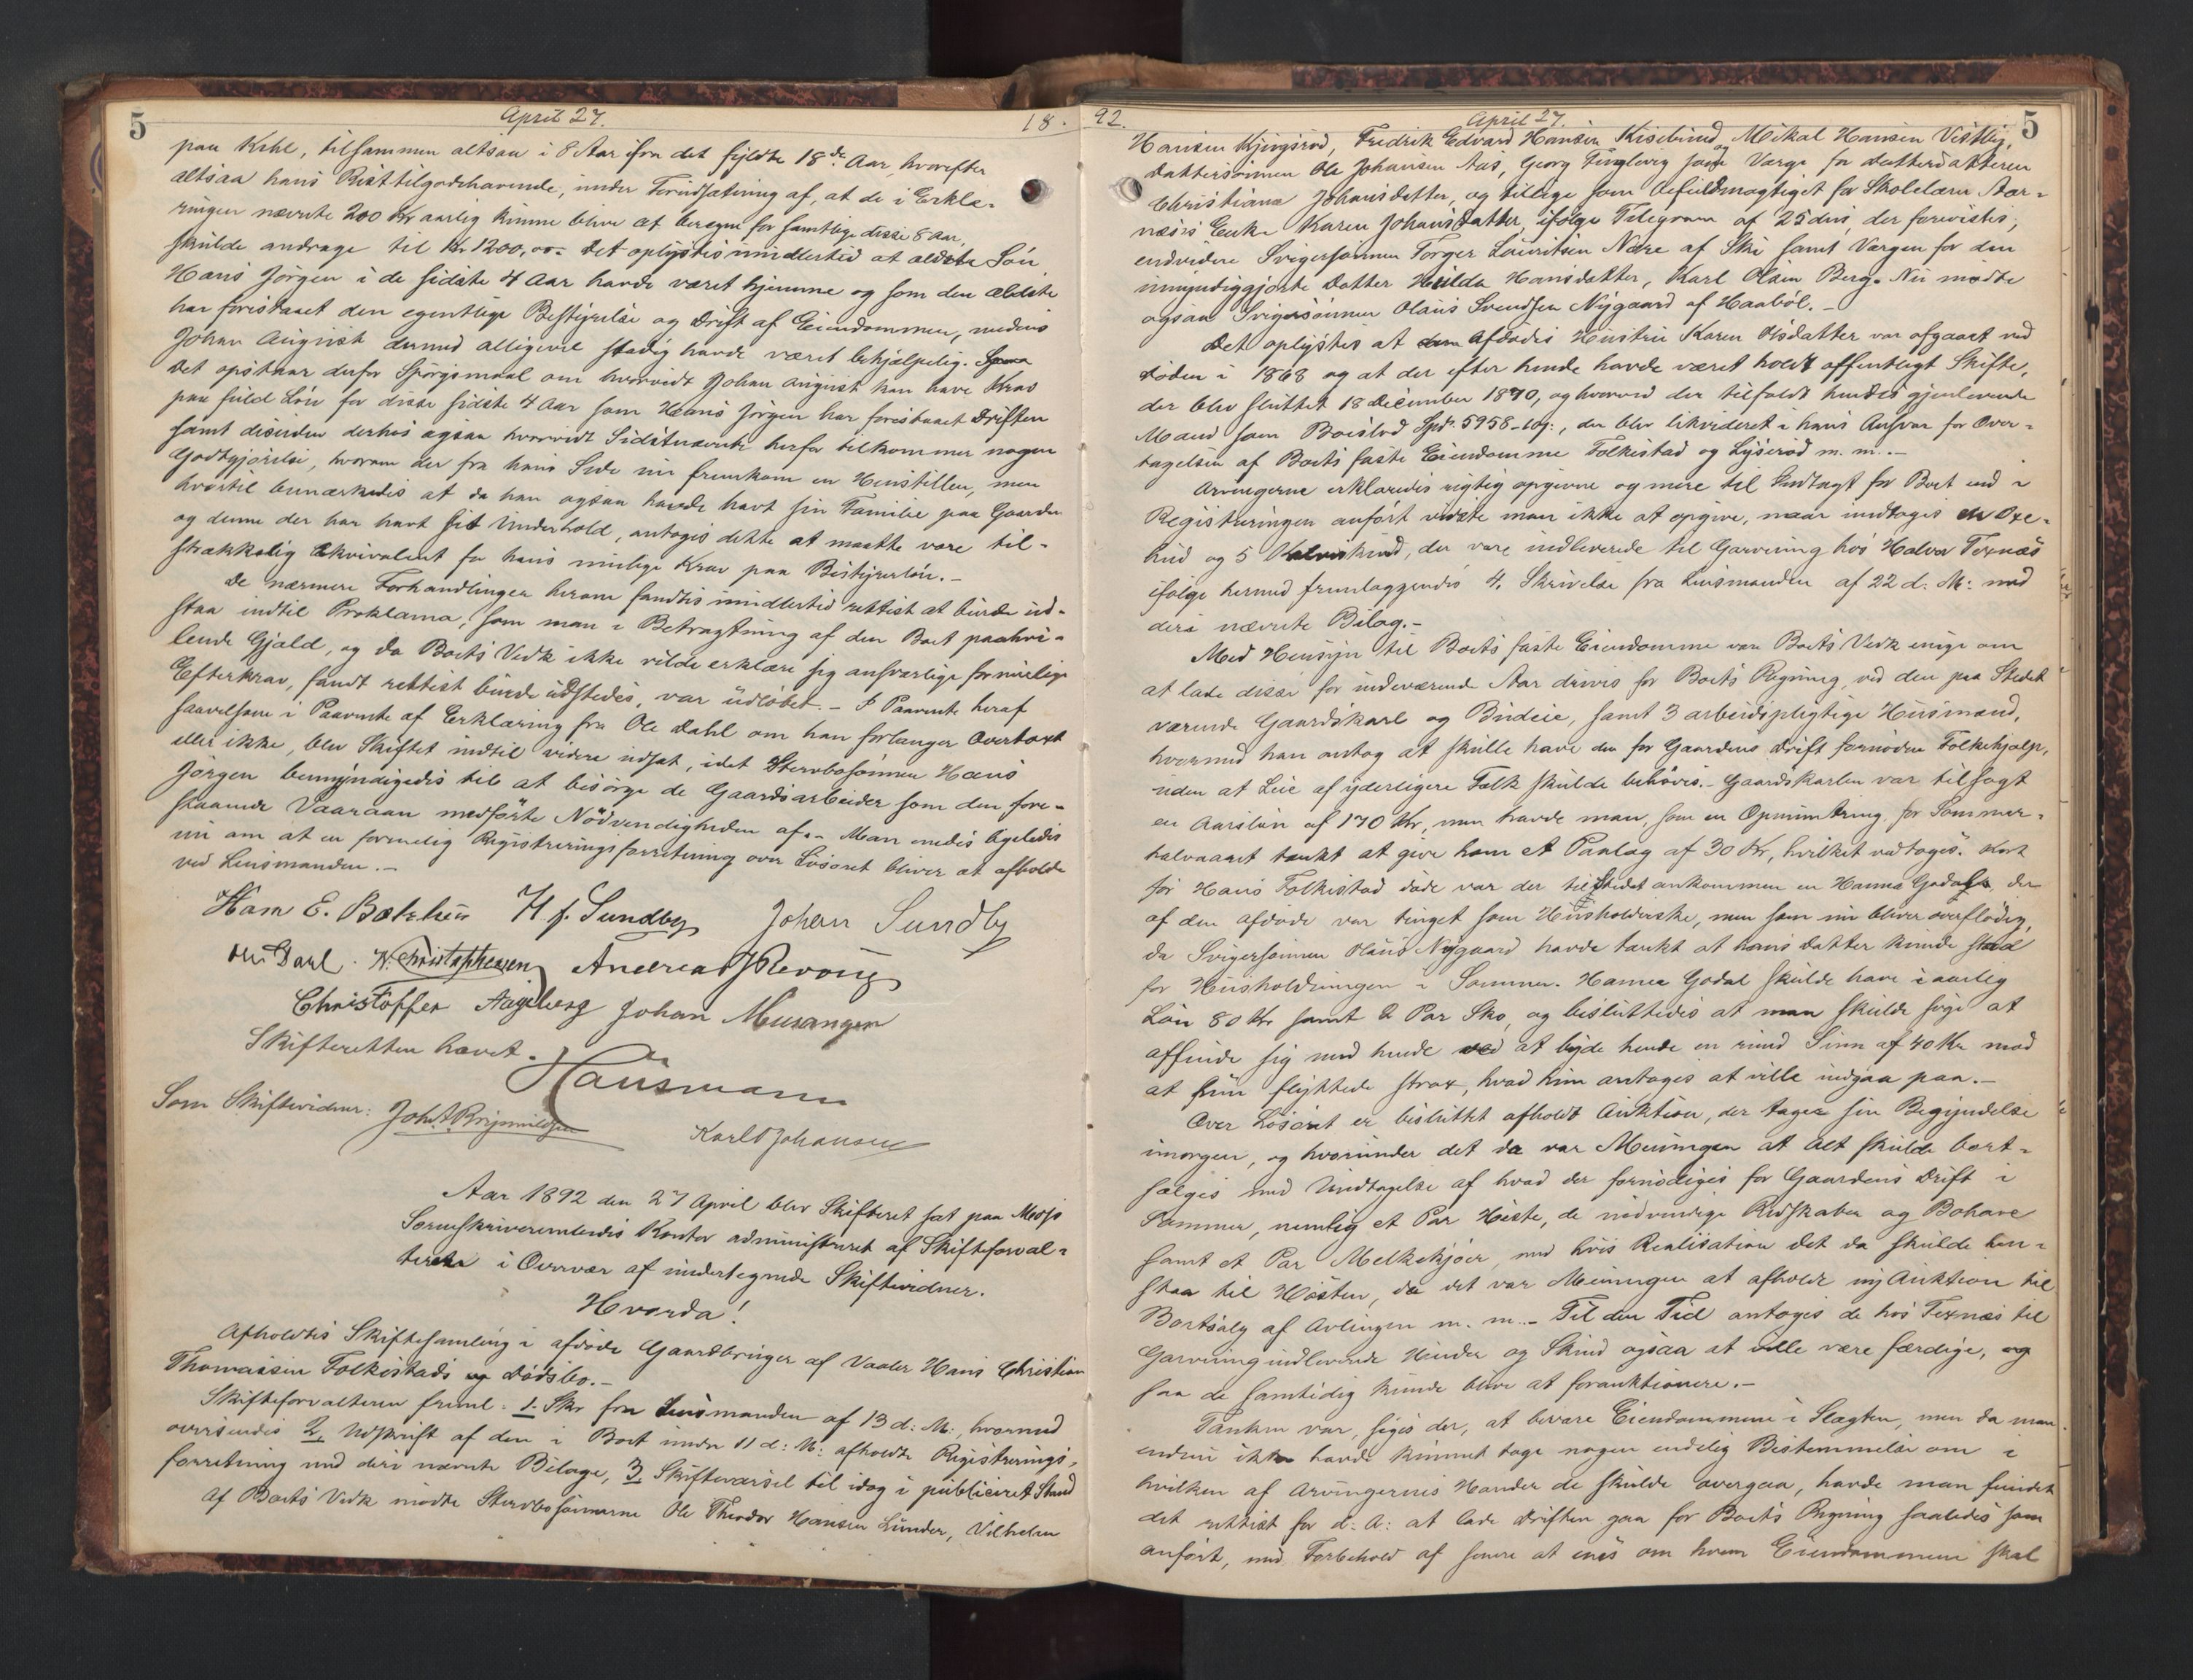 5
April 27.
18
paa Krhl, tilsammen altsaa i 8 Aar ifra det fyldte 18de Aar, hvorefter
altsaa hans Resttilgodehavende, under Forudsætning af, at de i Erklæ-
ringen nævnte 200 Kr aarlig kunne blive at beregne for samtlige disse 8 Aar,
skulde andrage til Kr 1200,00. Det oplystes imidlertid at ældste Søn
Hans Jørgen i de sidste 4 Aar havde været hjemme og som den ældste
har forestaaet den egentlige Bestyrelse og Drift af Eiendommen, medens
Johan August dermed alligevel stadig havde været behjælpelig.
Det opstaar derfor Spørgsmaal om hvorvidt Johan August kan have Krav
paa fuld Løn for disse sidste 4 Aar som Hans Jørgen har forestaaet Driften
samt desuden derhos ogsaa hvorvidt Sidstnævnte herfor tilkommer nogen
Godtgjørelse, hvorom der fra hans Side nu fremkom en Henstillen, men
hvortil bemærkedes at da han ogsaa havde havt sin Familie paa Gaarden
og denne der har havt sit Underhold, antoges dette at maatte være til-
strækkelig Ækvivalent for hans mulige Krav paa Bestyrerløn.-
De nærmere Forhandlinger herom fandtes imidlertid rettest at burde ud-
staa indtil Proklama, som man i Betragtning af den Boet paahvi-
lende Gjæld, og da Boets Vedk ikke vilde erklære sig ansvarlige for mulige
Efterkrav, fandt rettest burde udstedes, var udløbet.- I Paavente heraf
saavelsom i Paavente af Erklæring fra Ole Dahl om han forlanger Overtaxt
eller ikke, blev Skiftet indtil videre udsat, idet Stervbosønnen Hans
Jørgen bemyndigedes til at besørge de Gaardsarbeider som den fore-
staaende Vaaraan medførte Nødvendigheden af.- Man enedes ligeledes
nu om at en formelig Registreringsforretning over Løsøret bliver at afholde
ved Lensmanden.-
H. J. Sundby Johan Sundby
Ole Dahl. N. Christophersen Andreas
Christoffer Johan
Skifteretten hævet.
Hausmann
Som Skiftevidner:
Karl Johansen
Aar 1892 den 27 April blev Skifteret sat paa Moss
Sorenskriverembedes Kontor administreret af Skifteforval-
teren i Overvær af undertegnede Skiftevidner.
Hvorda!
Afholdtes Skiftesamling i afdøde Gaardbruger af Vaaler Hans Christian
Thomassen Folkestads Dødsbo.-
Skifteforvalteren freml. 1. Skr fra Lensmanden af 13 d: M:, hvormed
oversendes 2, Udskrift af den i Boet under 11 d: M: afholdte Registrerings-
forretning med deri nævnte Bilage, 3 Skiftevarsel til idag i publiceret Stand
Af Boets Vedk mødte Stervbosønnerne Ole Theodor Hansen Lunder, Vilhelm
92.
April 27.
5
Hansen Kjingsrød, Fredrik Edvard Hansen og Mikal Hansen Vestby,
Dattersønnen Ole Johansen Aas, Georg som Værge for Datterdatteren
Christiana Johansdatter, og tillige som befuldmægtiget for Skolelærer Aar-
næs's Enke Karen Johansdatter, ifølge Telegram af 25 dns, der forevistes,
endvidere Svigersønnen Torger Lauritsen Nære af Ski samt Værgen for den
umyndiggjorte Datter Hulda Hansdatter, Karl Olsen Berg. Nu mødte
ogsaa Svigersønnen Olaus Svendsen Nygaard af Haabøl.-
Det oplystes at Afdødes Hustru Karen Olsdatter var afgaaet ved
Døden i 1868 og at der efter hende havde været holdt offentligt Skifte,
der blev sluttet 18 December 1870, og hvorved der tilfaldt hendes gjenlevende
Mand som Boeslod Spd. 5958-, der blev likvideret i hans Ansvar for Over-
tagelsen af Boets faste Eiendomme Folkestad og Lyserød m. m.-
Arvingerne erklæredes rigtig opgivne og mere til Indtægt for Boet end i
Registreringen anført vidste man ikke at opgive, naar undtoges en Oxe-
hud og 5 Kalveskind, der vare indleverede til Garvning hos Halvor Texnæs
ifølge hermed fremlæggendes 4. Skrivelse fra Lensmanden af 22 d. M: med
deri nævnte Bilag.-
Med Hensyn til Boets faste Eiendomme vare Boets Vedk enige om
at lade disse for indeværende Aar drives for Boets Regning, ved den paa Stedet
værende Gaardskarl og Budeie, samt 3 arbeidspligtige Husmænd,
hvormed han antog at skulle have den for Gaardens Drift fornødne Folkehjælp,
uden at Leie af yderligere Folk skulde behøves.- Gaardskarlen var tilsagt
en Aarsløn af 170 Kr, men havde man, som en Opmuntring for Sommer-
halvaaret tænkt at give ham et Paalæg af 30 Kr, hvilket vedtoges. Kort
før Hans Folkestad døde var der til Stedet ankommen en Hanna Godal, der
af den afdøde var tinget som Husholderske, men som nu bliver overflødig,
da Svigersønnen Olaus Nygaard havde tænkt at hans Datter kunde staa
for Husholdningen i Sommer. Hanna Godal skulde have i aarlig
Løn 80 Kr samt 2 Par Sko, og besluttedes at man skulde søge at
affinde sig med hende ved at byde hende en rund Sum af 40 Kr mod
at hun flyttede strax, hvad hun antoges at ville indgaa paa.-
Over Løsøret er besluttet afholdt Auktion, der tager sin Begyndelse
imorgen, og hvorunder det da var Meningen at Alt skulde bort-
sælges med Undtagelse af hvad der fornødiges for Gaardens Drift i
Sommer, nemlig et Par Heste, de nødvendige Redskaber og Bohave
samt et Par Melkekjøer, med hvis Realisation det da skulde hen-
staa til Høsten, da det var Meningen at afholde ny Auktion til
Bortsalg af Avlingen m. m.- Til den Tid antoges de hos Texnæs til
Garvning indleverede Huder og Skind ogsaa at ville være færdige,
saa de samtidig kunde blive at forauktionere.-
Tanken var, siges der, at bevare Eiendommene i Slægten, men da man
endnu ikke havde kunnet tage nogen endelig Bestemmelse om i
hvilken af Arvingernes Hænder de skulde overgaa, havde man fundet
det rettest for d: A: at lade Driften gaa for Boets Regning saaledes som
anført, med Forbehold af senere at enes om hvem Eiendommene skal